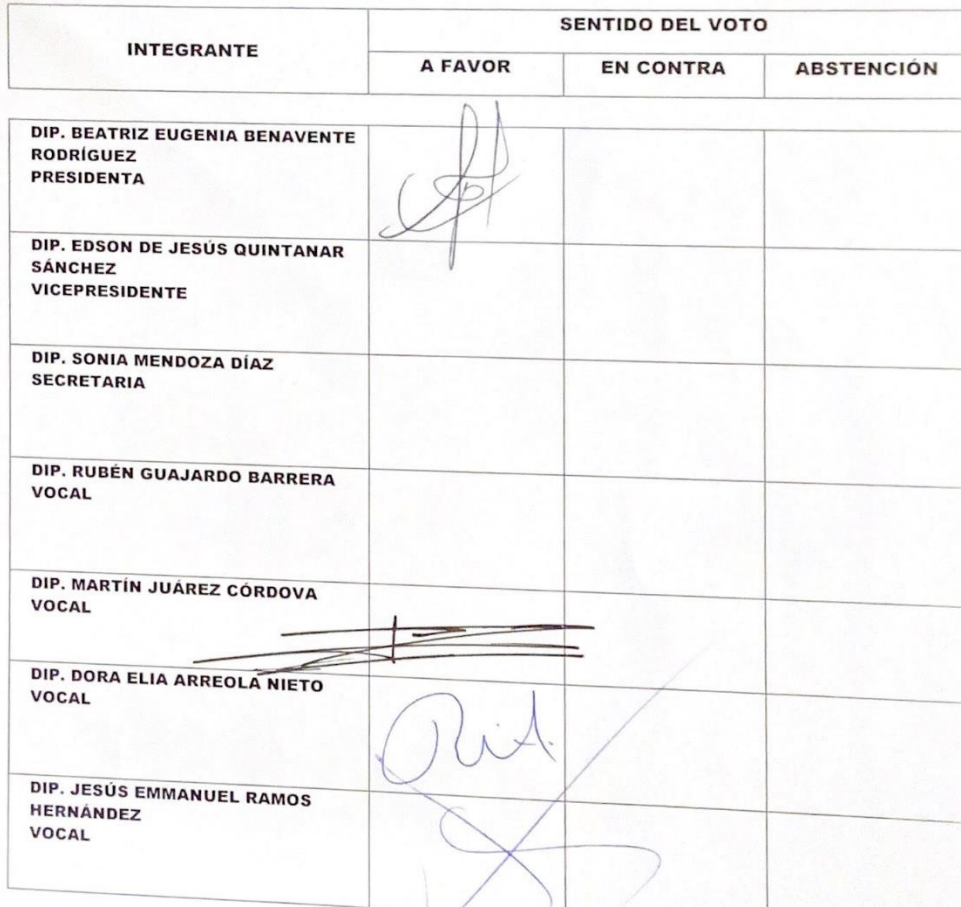 INTEGRANTE
SENTIDO DEL VOTO
A FAVOR
EN CONTRA
ABSTENCIÓN
DIP. BEATRIZ EUGENIA BENAVENTE
RODRÍGUEZ
PRESIDENTA
DIP. EDSON DE JESÚS QUINTANAR
SÁNCHEZ
VICEPRESIDENTE
DIP. SONIA MENDOZA DÍAZ
SECRETARIA
DIP. RUBÉN GUAJARDO BARRERA
VOCAL
DIP. MARTÍN JUÁREZ CÓRDOVA
VOCAL
DIP. DORA ELIA ARREOLA NIETO
VOCAL
DIP. JESÚS EMMANUEL RAMOS
HERNÁNDEZ
VOCAL